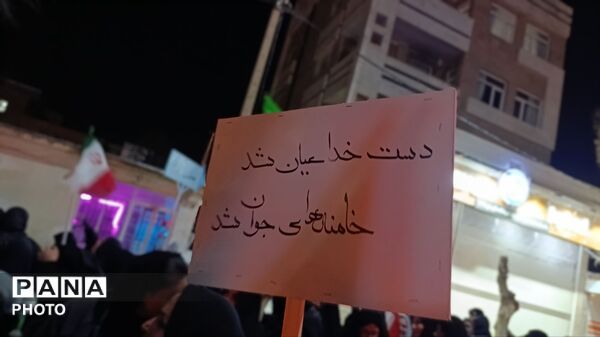 دست خدا عیان شد
خامنه‌ای جوان شد
PANA
PANA
PHOTO